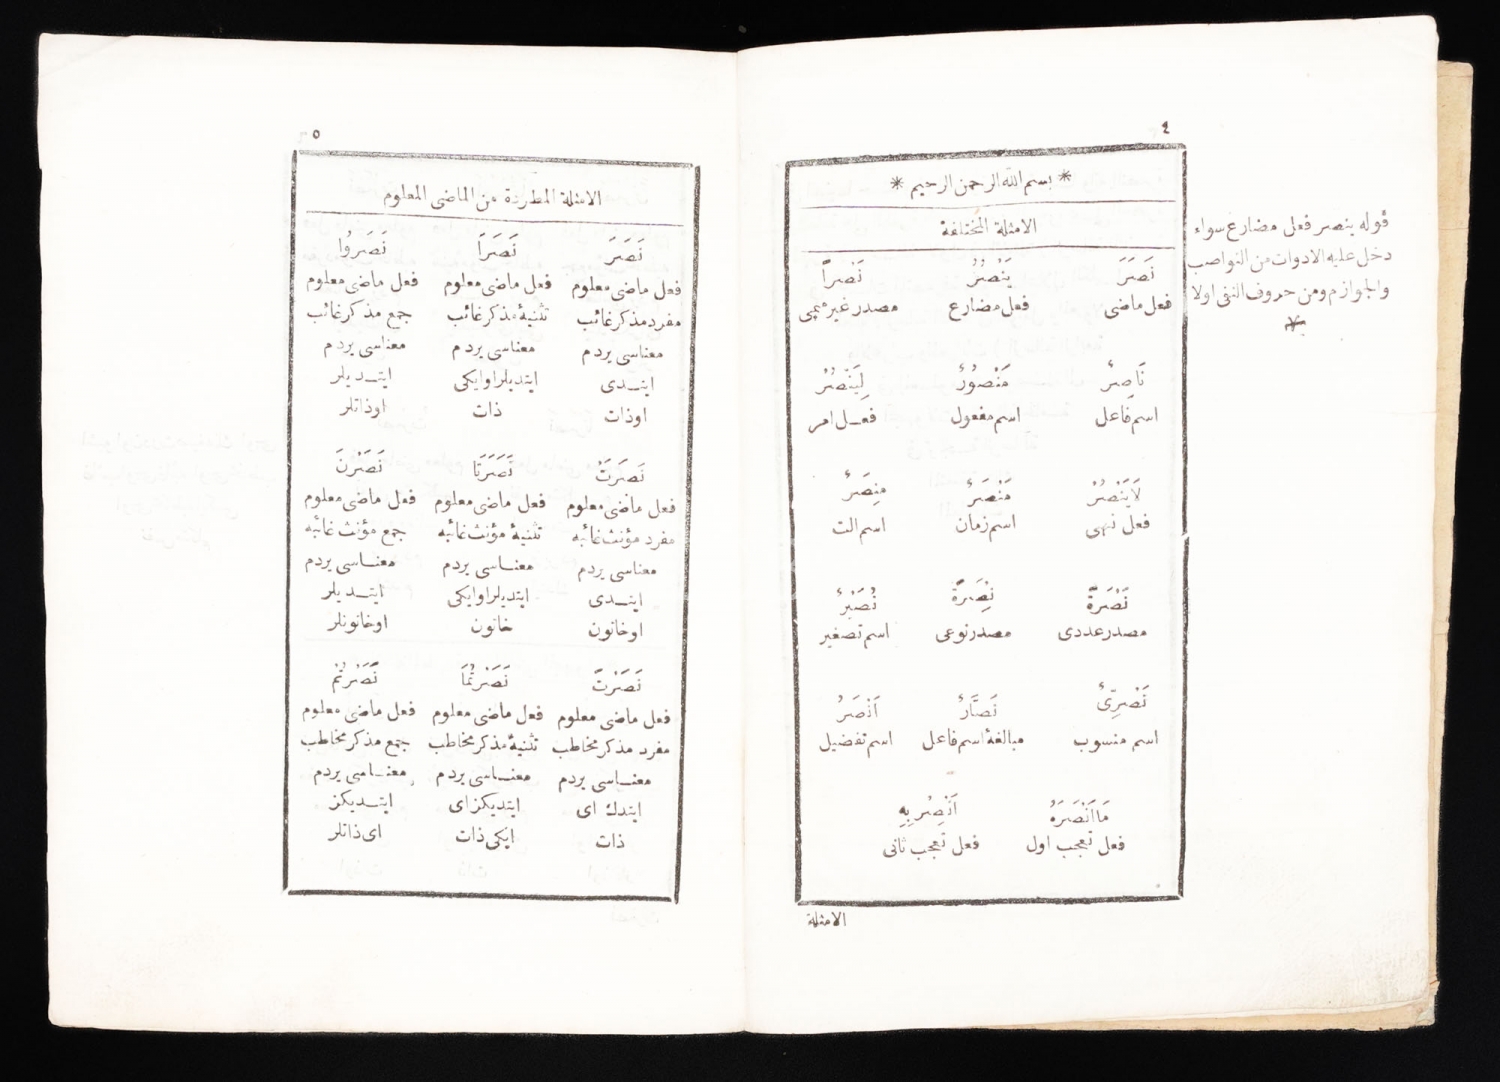 ٤
* بسم الله الرحمن الرحيم *
الامثلة المختلفة
نَصَرَ يَنْصُرُ نَصْراً
فعل ماضى فعل مضارع مصدر غير ميمى
نَاصِرٌ مَنْصُورٌ لِيَنْصُرْ
اسم فاعل اسم مفعول فعل امر
لَايَنْصُرْ مَنْصَرٌ مِنصَرٌ
فعل نهى اسم زمان اسم الت
نَصْرَةً نِصْرَةً نُصَيْرٌ
مصدر عددى مصدر نوعى اسم تصغير
نَصْرِىٌّ نَصَّارٌ اَنْصَرُ
اسم منسوب مبالغۀ اسم فاعل اسم تفضيل
مَا اَنْصَرَهُ اَنْصِرْ بِهِ
فعل تعجب اول فعل تعجب ثانى
الامثلة
قوله ينصر فعل مضارع سواء
دخل عليه الادوات من النواصب
والجوازم ومن حروف النفى اولا
٥
الامثلة المطردة من الماضى المعلوم
نَصَرَ نَصَرَا نَصَرُوا
فعل ماضى معلوم فعل ماضى معلوم فعل ماضى معلوم
مفرد مذكر غائب تثنيۀ مذكر غائب جمع مذكر غائب
معناسى يردم معناسى يردم معناسى يردم
ايتدى ايتديلر اوايكى ايتديلر
اوذات ذات اوذاتلر
نَصَرَتْ نَصَرَتَا نَصَرْنَ
فعل ماضى معلوم فعل ماضى معلوم فعل ماضى معلوم
مفرد مؤنث غائبه تثنيۀ مؤنث غائبه جمع مؤنث غائبه
معناسى يردم معناسى يردم معناسى يردم
ايتدى ايتديلر اوايكى ايتديلر
اوخاتون خاتون اوخاتونلر
نَصَرْتَ نَصَرْتُمَا نَصَرْتُمْ
فعل ماضى معلوم فعل ماضى معلوم فعل ماضى معلوم
مفرد مذكر مخاطب تثنيۀ مذكر مخاطب جمع مذكر مخاطب
معناسى يردم معناسى يردم معناسى يردم
ايتدك اى ايتديكز اى ايتديكز
ذات ايكى ذات اى ذاتلر